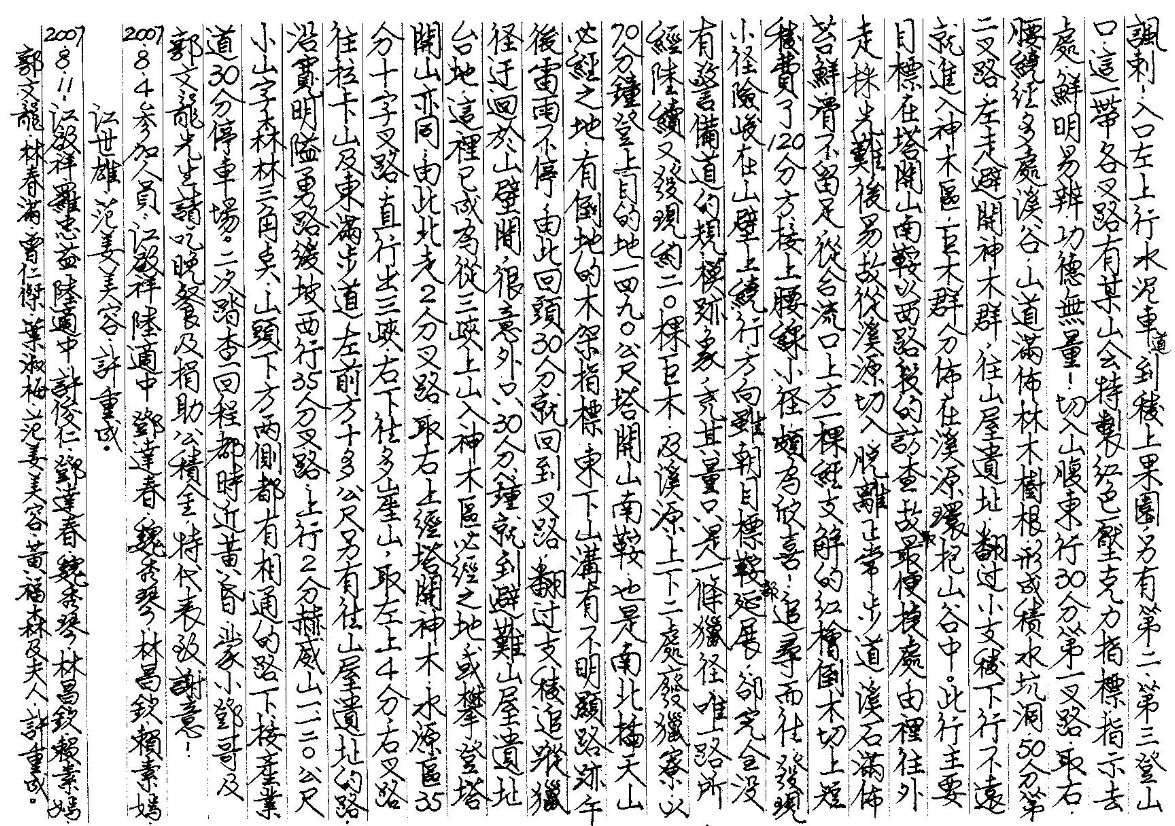 諷刺!入口左上行水泥車道到稜上果園另有第二、第三登山
口這一帶各叉路有某山会特製紅色壓克力指標指示去
處鮮明易辨功德無量!切入山腹東行30分第一叉路取右
腰繞経多處溪谷山道滿佈林木樹根形成積水坑洞50分第
二叉路左走避開神木群往山屋遺址翻过小支稜下行不遠
就進入神木區巨木群分佈在溪源環抱山谷中。此行主要
目標在塔開山南鞍以西路段的訪查故最便捷處由裡往外
走採先難後易故從溪源切入脫離正常步道溪石滿佈
苔鮮滑不留足從合流口上方一棵経支解的紅檜倒木切上短
稜費了120分方接上腰線小径頗為欣喜!追尋而往發現
小径險峻在山壁上繞行方向雖朝目標鞍部延展卻完全沒
有警備道的規模跡象充其量只是一條獵径唯一路所
經陸續又發現約二0棵巨木及溪源上下二處廢獵寮以
70分鐘登上目的地一四九0公尺塔開山南鞍也是南北插天山
必経之地有倒地的木架指標東下山溝有不明顯路跡午
後雷雨不停由此回頭30分就回到叉路翻过支稜追蹤獵
径迂迴於山壁間很意外只30分鐘就到避難山屋遺址
台地這裡已成為從三峽上山入神木區必経之地或攀登塔
開山亦同由此北走2分叉路取右上經塔開神木水源區35
分十字叉路直行出三峽右下往多崖山取左上4分右叉路
往拉卡山及東滿步道左前方十多公尺另有往山屋遺址的路
沿賓明隘勇路緩坡西行35分叉路上行2分赫威山一一二0公尺
小山字森林三角矣山頭下方兩側都有相通的路下接產業
道30分停車場。二次踏查回程都時近黃昏蒙小鄧哥及
郭文龍先生請吃晚餐及捐助公積金特代表致謝意!
2007 8.4參加人員:江啟祥陸適中鄧達春魏秀琴林昌欽賴素嫣
江世雄范姜美容許重成。
2007 8.11:江啟祥羅忠益陸適中許俊仁鄧達春魏秀琴林昌欽賴素嫣
郭文龍林春滿曾仁傑葉淑梅范姜美容黃福森及夫人許重成。